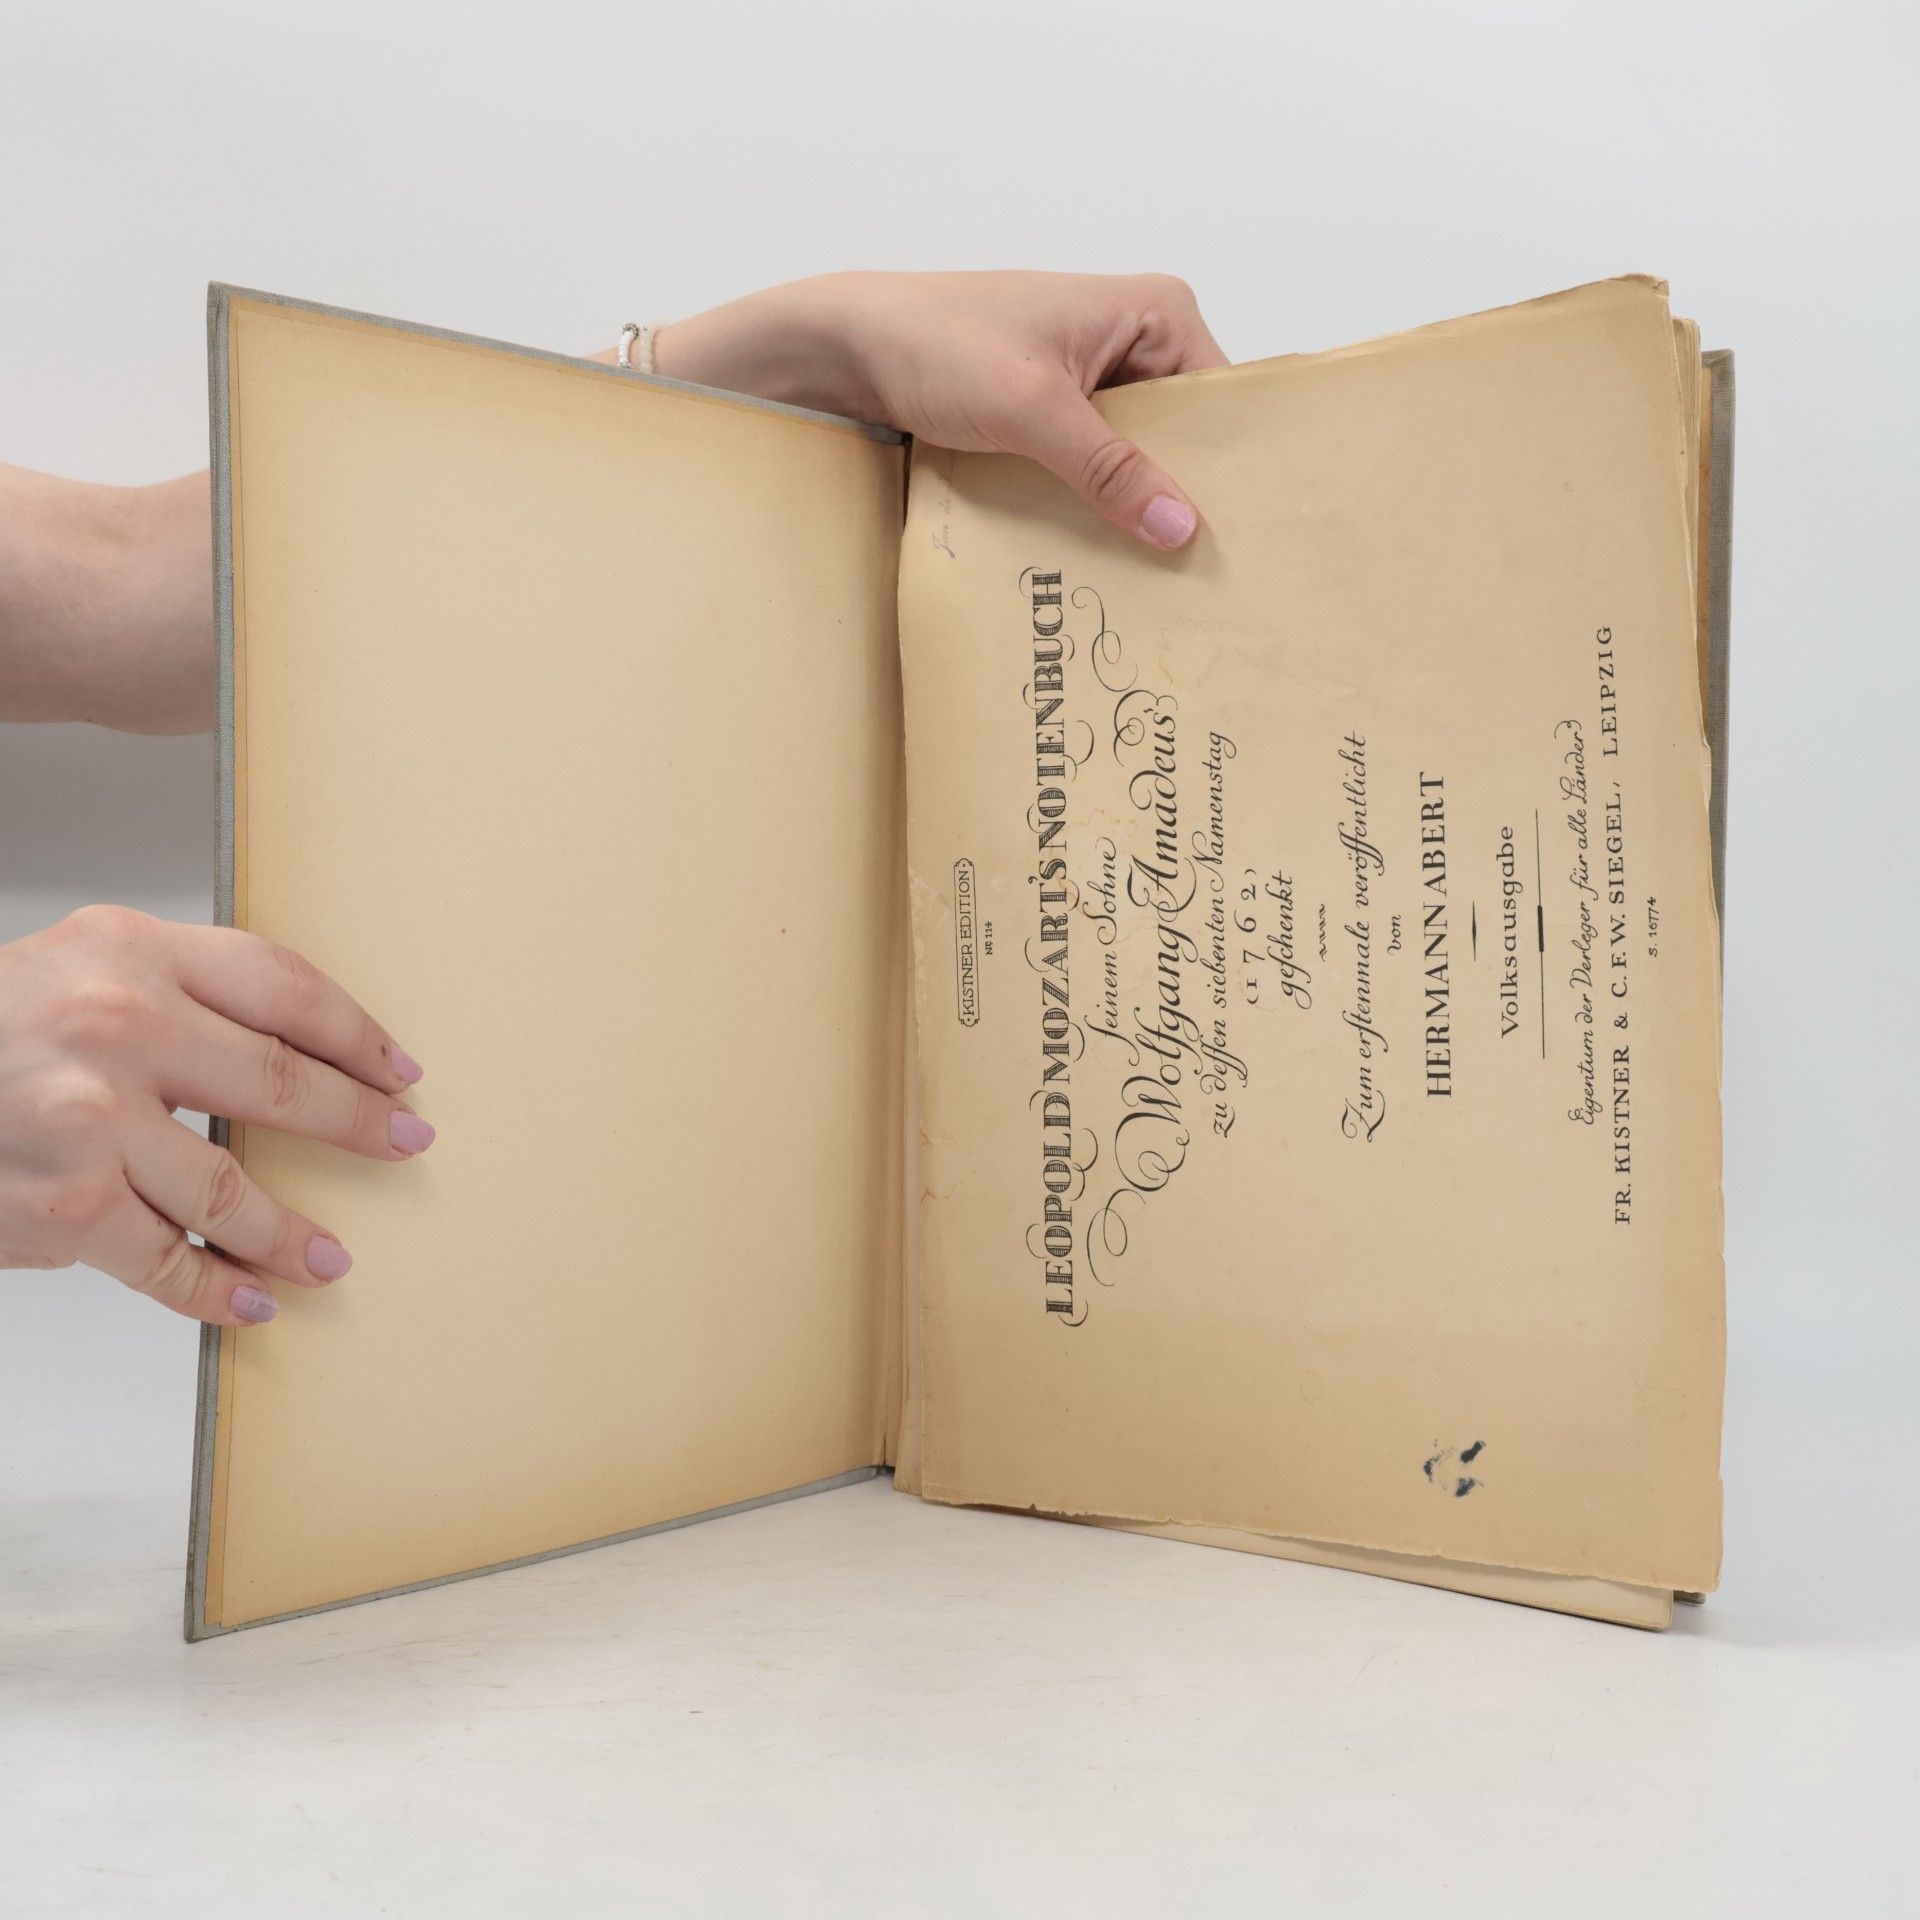 KISTNER EDITION
Nº 114
LEOPOLD MOZART'S NOTENBUCH
ſeinem Sohne
Wolfgang Amadeus'
zu deſſen siebenten Namenstag
(1762)
geſchenkt
Zum erſtenmale veröffentlicht
von
HERMANN ABERT
Volksausgabe
Eigentum der Verleger für alle Länder
FR. KISTNER & C. F. W. SIEGEL, LEIPZIG
S. 16774